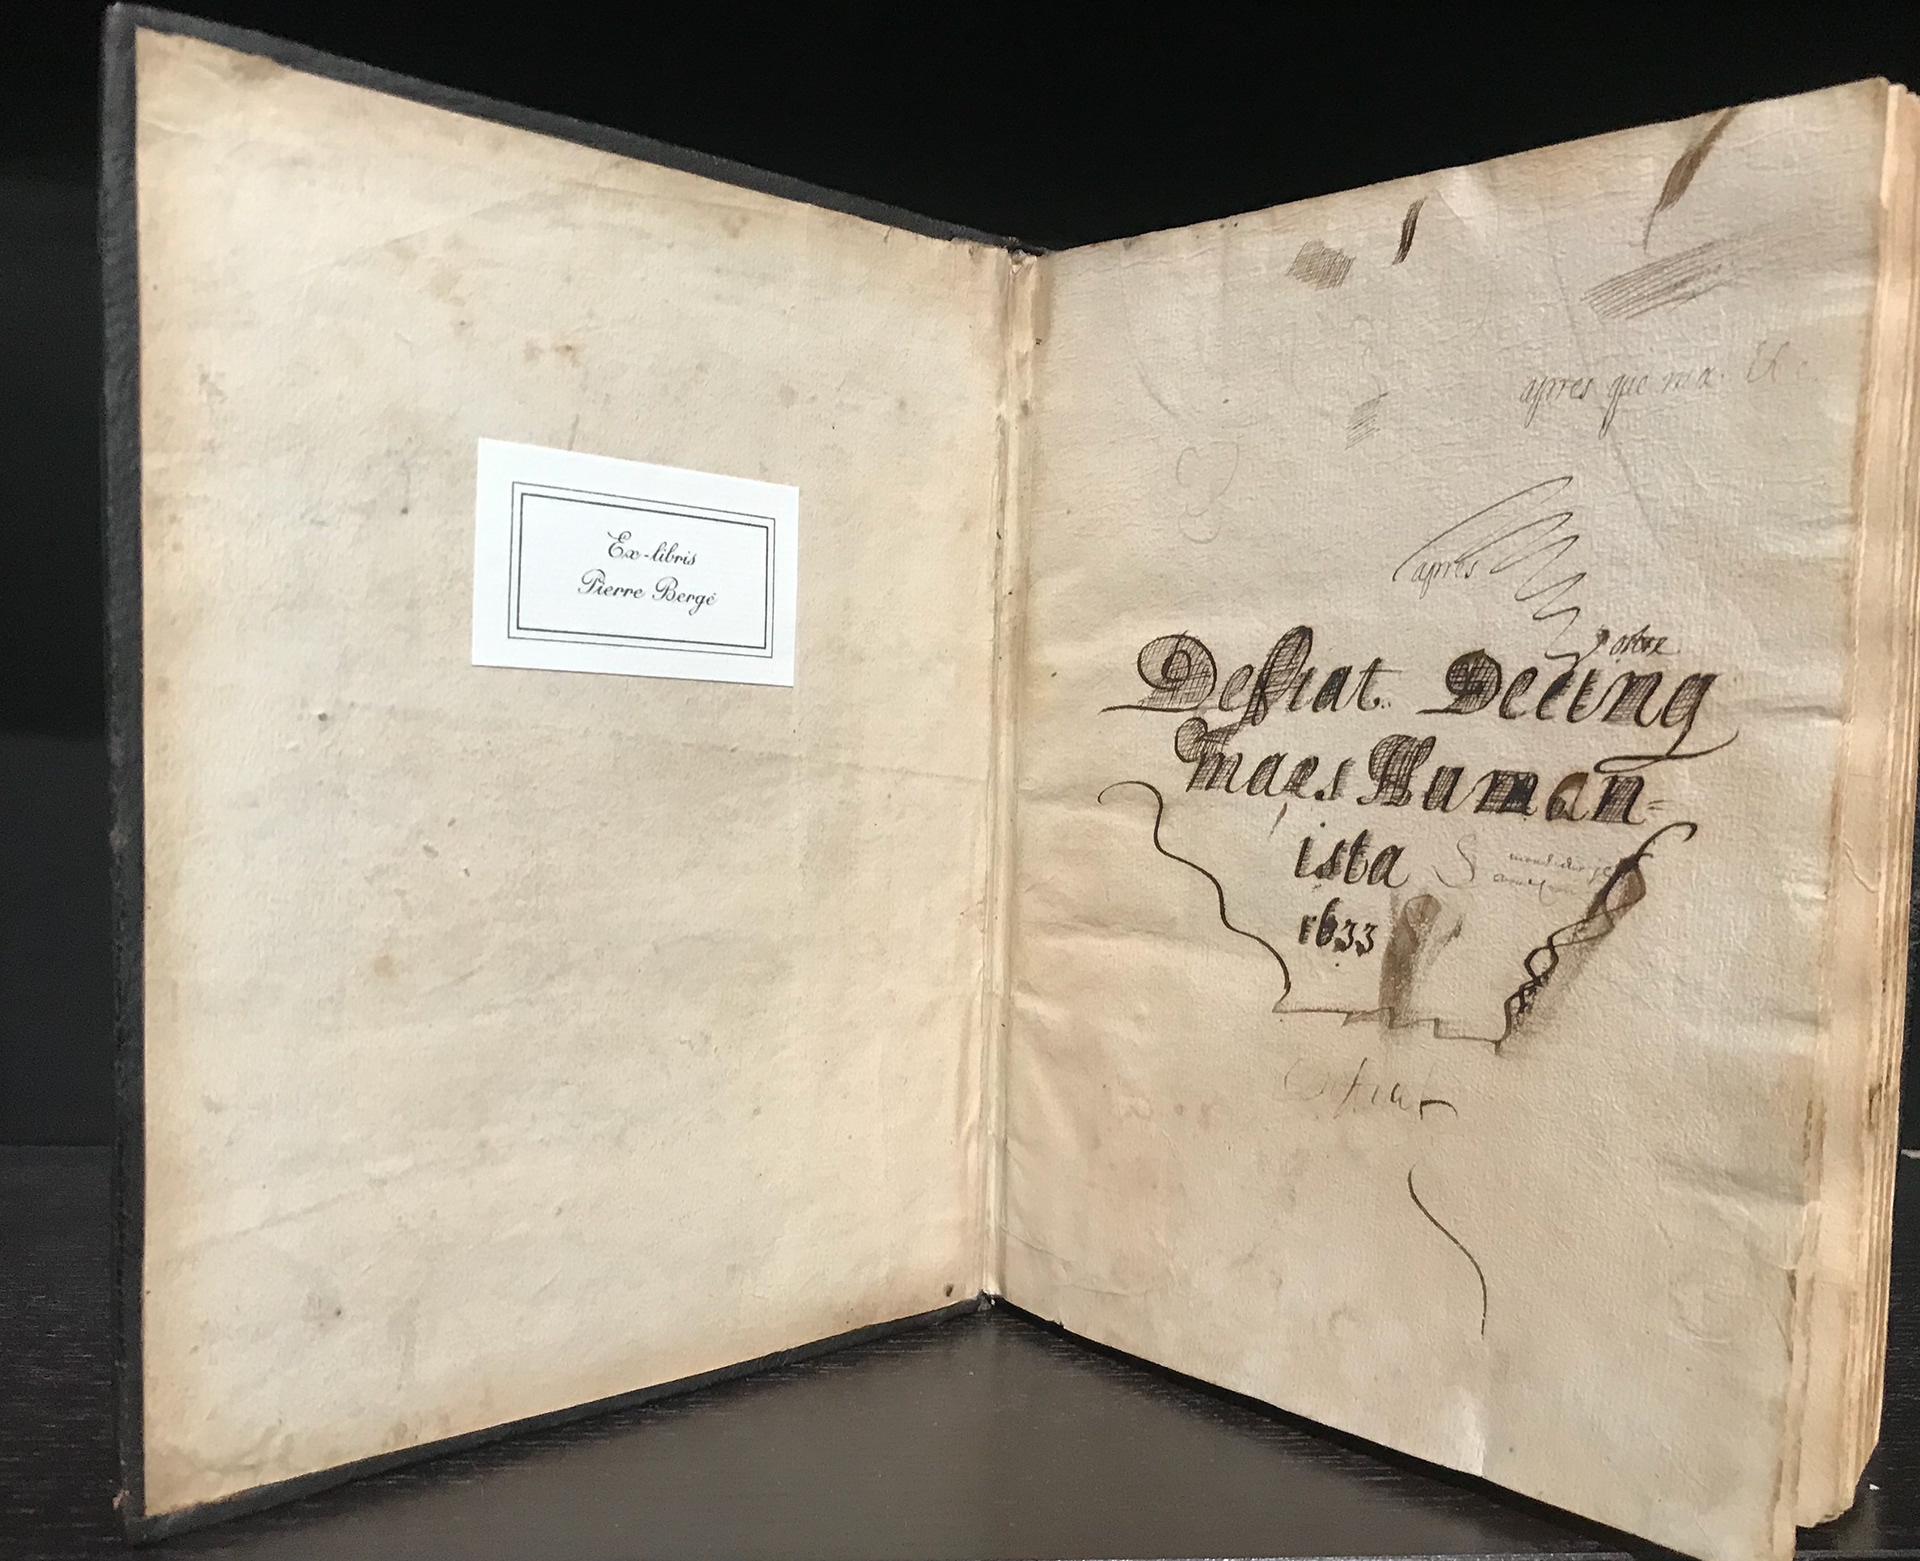 Ex-libris
Pierre Bergé
apres que
apres
Defiat. Decinq
maes Human=
ista
1633